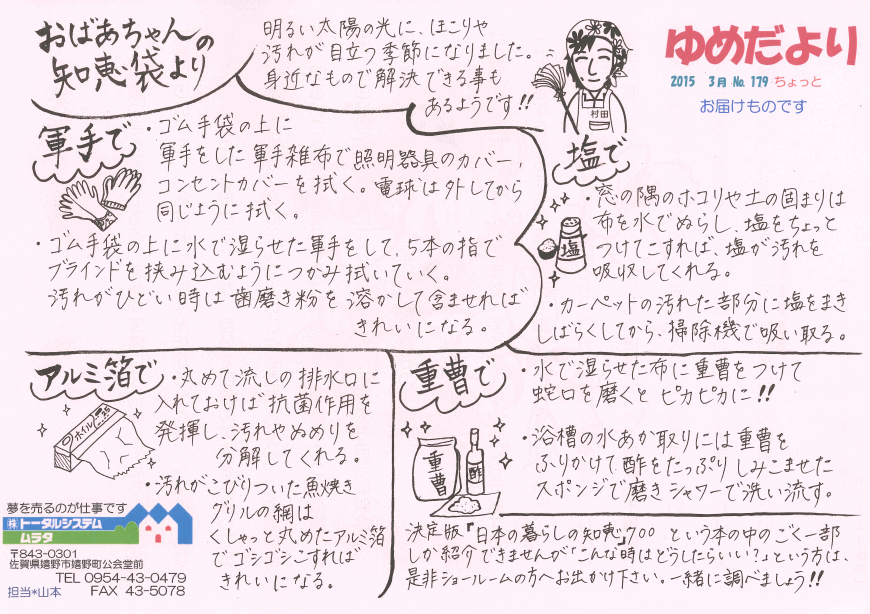 おばあちゃんの
知恵袋より
明るい太陽の光に、ほこりや
汚れが目立つ季節になりました。
身近なもので解決できる事も
あるようです!!
村田
ゆめだより
2015 3月 No. 179 ちょっと
お届けものです
軍手で
・ゴム手袋の上に
軍手をした軍手雑布で照明器具のカバー,
コンセントカバーを拭く。電球は外してから
同じように拭く。
・ゴム手袋の上に水で湿らせた軍手をして、5本の指で
ブラインドを挟み込むようにつかみ拭いていく。
汚れがひどい時は歯磨き粉を溶かして含ませれば
きれいになる。
塩で
塩
・窓の隅のホコリや土の固まりは
布を水でぬらし、塩をちょっと
つけてこすれば、塩が汚れを
吸収してくれる。
・カーペットの汚れた部分に塩をまき
しばらくしてから、掃除機で吸い取る。
アルミ箔で
ホイル
・丸めて流しの排水口に
入れておけば抗菌作用を
発揮し、汚れやぬめりを
分解してくれる。
・汚れがこびりついた魚焼き
グリルの網は
くしゃっと丸めたアルミ箔
でゴシゴシこすれば
きれいになる。
重曹で
重曹
酢
・水で湿らせた布に重曹をつけて
蛇口を磨くと ピカピカに!!
・浴槽の水あか取りには重曹を
ふりかけて酢をたっぷりしみこませた
スポンジで磨きシャワーで洗い流す。
決定版『日本の暮らしの知恵』700 という本の中のごく一部
しか紹介できませんが「こんな時はどうしたらいい?」という方は、
是非ショールームの方へお出かけ下さい。一緒に調べましょう!!
夢を売るのが仕事です
㈱トータルシステム
ムラタ
〒843-0301
佐賀県嬉野市嬉野町公会堂前
TEL 0954-43-0479
担当*山本 FAX 43-5078